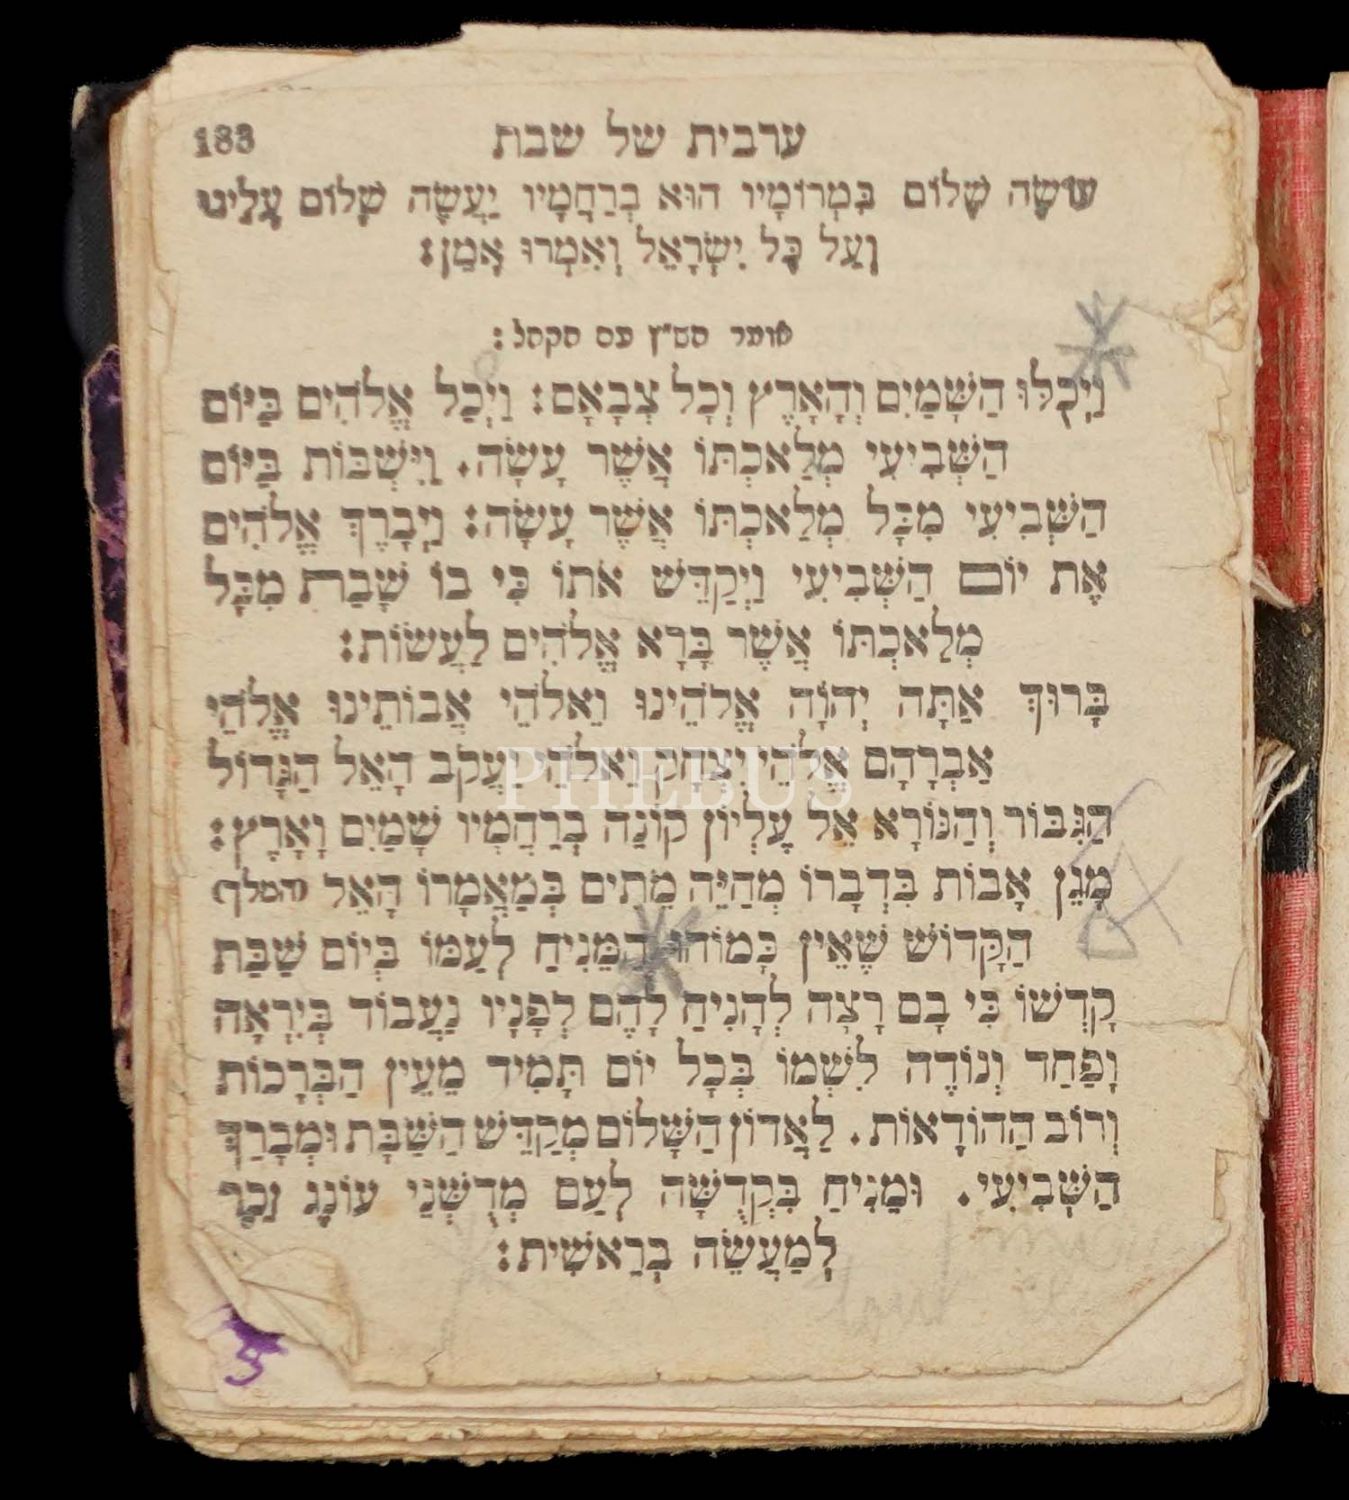 183 ערבית של שבת
עוֹשֶׂה שָׁלוֹם בִּמְרוֹמָיו הוּא בְּרַחֲמָיו יַעֲשֶׂה שָׁלוֹם עָלֵינוּ
וְעַל כָּל יִשְׂרָאֵל וְאִמְרוּ אָמֵן:
אומר הש"ץ עם הקהל:
וַיְכֻלּוּ הַשָּׁמַיִם וְהָאָרֶץ וְכָל צְבָאָם: וַיְכַל אֱלֹהִים בַּיּוֹם
הַשְּׁבִיעִי מְלַאכְתּוֹ אֲשֶׁר עָשָׂה. וַיִּשְׁבּוֹת בַּיּוֹם
הַשְּׁבִיעִי מִכָּל מְלַאכְתּוֹ אֲשֶׁר עָשָׂה: וַיְבָרֶךְ אֱלֹהִים
אֶת יוֹם הַשְּׁבִיעִי וַיְקַדֵּשׁ אֹתוֹ כִּי בוֹ שָׁבַת מִכָּל
מְלַאכְתּוֹ אֲשֶׁר בָּרָא אֱלֹהִים לַעֲשׂוֹת:
בָּרוּךְ אַתָּה יְהוָֹה אֱלֹהֵינוּ וֵאלֹהֵי אֲבוֹתֵינוּ אֱלֹהֵי
אַבְרָהָם אֱלֹהֵי יִצְחָק וֵאלֹהֵי יַעֲקֹב הָאֵל הַגָּדוֹל
הַגִּבּוֹר וְהַנּוֹרָא אֵל עֶלְיוֹן קוֹנֵה בְרַחֲמָיו שָׁמַיִם וָאָרֶץ:
מָגֵן אָבוֹת בִּדְבָרוֹ מְחַיֵּה מֵתִים בְּמַאֲמָרוֹ הָאֵל המלך
הַקָּדוֹשׁ שֶׁאֵין כָּמוֹהוּ הַמֵּנִיחַ לְעַמּוֹ בְּיוֹם שַׁבַּת
קָדְשׁוֹ כִּי בָם רָצָה לְהָנִיחַ לָהֶם לְפָנָיו נַעֲבוֹד בְּיִרְאָה
וָפַחַד וְנוֹדֶה לִשְׁמוֹ בְּכָל יוֹם תָּמִיד מֵעֵין הַבְּרָכוֹת
וְרוֹב הַהוֹדָאוֹת. לַאֲדוֹן הַשָּׁלוֹם מְקַדֵּשׁ הַשַּׁבָּת וּמְבָרֵךְ
הַשְּׁבִיעִי. וּמֵנִיחַ בִּקְדֻשָּׁה לְעַם מְדֻשְּׁנֵי עוֹנֶג זֵכֶר
לְמַעֲשֵׂה בְרֵאשִׁית:
PHEBUS
5